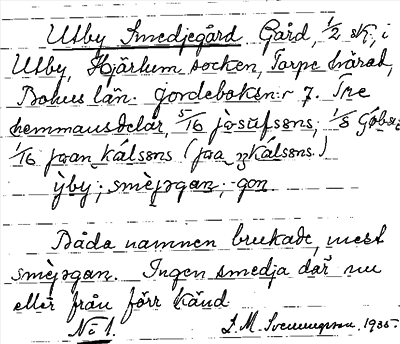 Utby Smedjegård Gård, 1/2 sk., i
Utby, Hjärtum socken, Torpe härad,
Bohus län. Jordeboksn:r 7. Tre
hemmansdelar, 5/16 jòsufsøns, 1/8 Góbse
1/16 ján kálsøns (jaa kálsøns.)
ỳby, smèjəgan, gon.
Båda namnen brukade, mest
smèjəgan. Ingen smedja där nu
eller från förr känd
No 1. J. M. Svenningson, 1935.